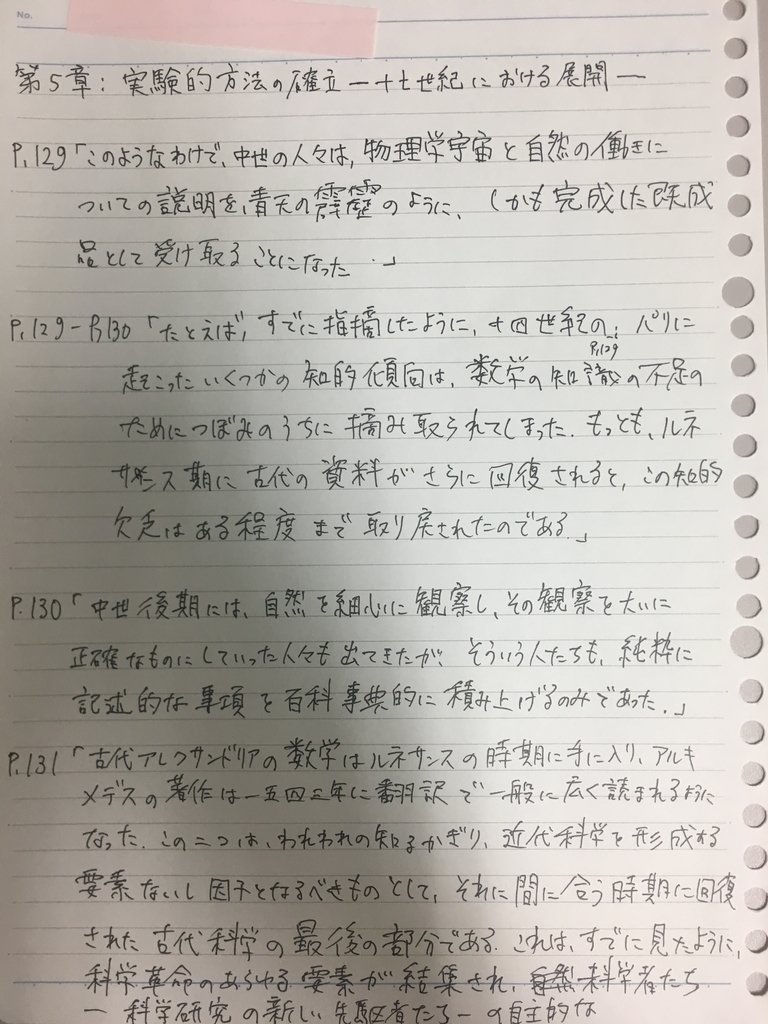 No.
第5章: 実験的方法の確立 ー十七世紀における展開ー
P.129「このようなわけで、中世の人々は、物理学宇宙と自然の働きに
ついての説明を、青天の霹靂のように、しかも完成した既成
品として受け取ることになった.」
P.129-P.130「たとえば、すでに指摘したように、十四世紀の パリに
P.129
起こったいくつかの知的傾向は、数学の知識の不足の
ためにつぼみのうちに摘み取られてしまった. もっとも、ルネ
サンス期に古代の資料がさらに回復されると、この知的
欠乏はある程度まで取り戻されたのである.」
P.130「中世後期には、自然を細心に観察し、その観察を大いに
正確なものにしていった人々も出てきたが、そういう人たちも、純粋に
記述的な事項を百科事典的に積み上げるのみであった.」
P.131「古代アレクサンドリアの数学はルネサンスの時期に手に入り、アルキ
メデスの著作は一五四三年に翻訳で一般に広く読まれるように
なった. この二つは、われわれの知るかぎり、近代科学を形成する
要素ないし因子となるべきものとして、それに間に合う時期に回復
された古代科学の最後の部分である. これは、すでに見たように、
科学革命のあらゆる要素が結集され、科学者たち
ー科学研究の新しい先駆者たちーの自主的な